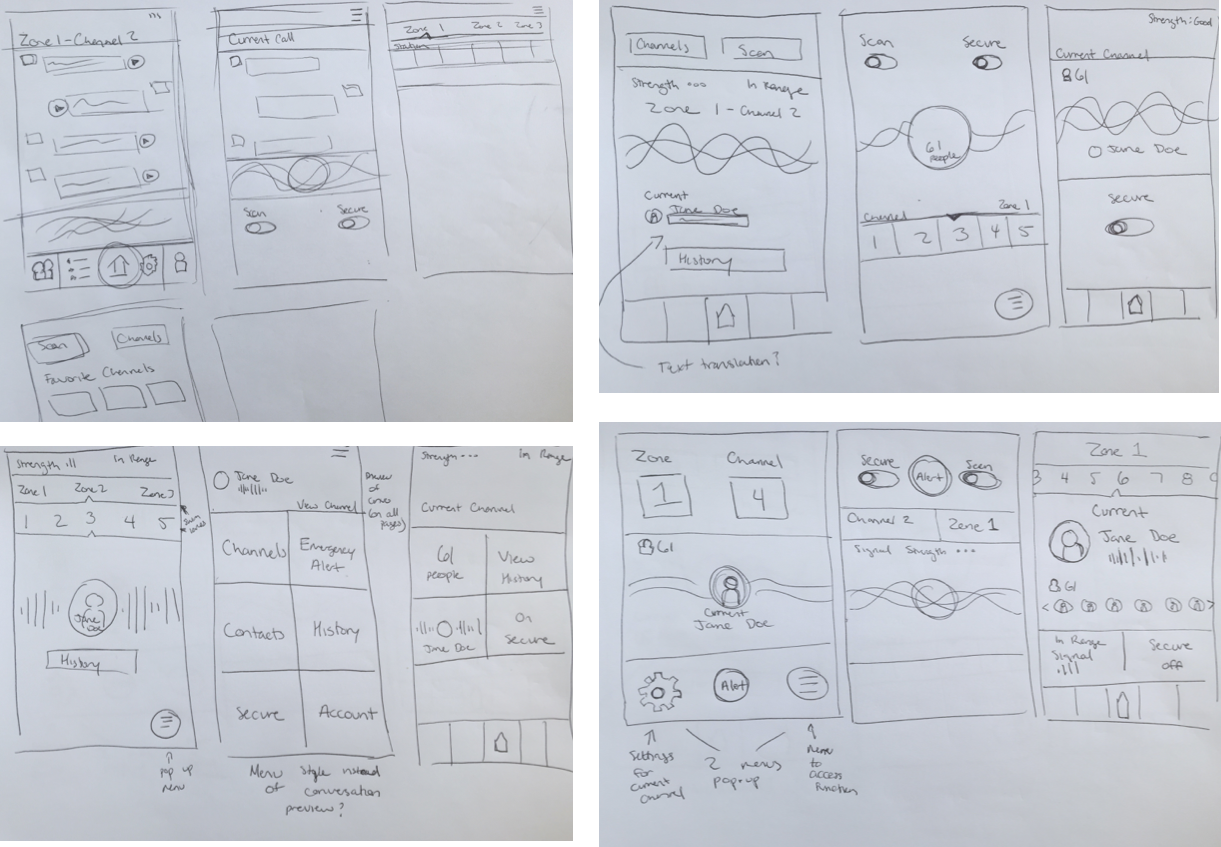 Zone 1 - Channel 2
Current Call
Scan
Secure
Zone 1
Zone 2
Zone 3
Stations
Scan
Channels
Favorite Channels
Channels
Scan
Strength
In Range
Zone 1 - Channel 2
Current
Jane Doe
History
Text translation?
Scan
Secure
61
people
Channel
Zone 1
1 2 3 4 5
Strength: Good
Current Channel
61
Jane Doe
Secure
Strength
In Range
Zone 1
Zone 2
Zone 3
1 2 3 4 5
Jane
Doe
History
pop up
menu
Jane Doe
View Channel
of
(on all
pages)
Channels
Emergency
Alert
Contacts
History
Secure
Account
Menu style instead
of conversation
preview?
Strength
In Range
Current Channel
61
people
View
History
Jane Doe
On
Secure
Zone
Channel
1
4
61
Current
Jane Doe
Alert
Settings
for
current
channel
2 menus
pop-up
menu
to
access
function
Secure
Alert
Scan
Channel 2
Zone 1
Signal Strength
Zone 1
3 4 5 6 7 8 9
Current
Jane Doe
61
In Range
Signal
Secure
off